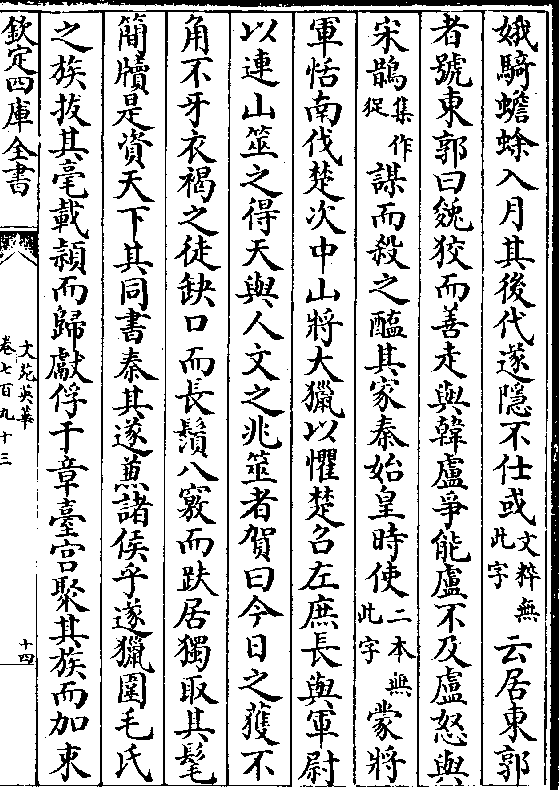 娥騎蟾蜍入月其後代遂隱不仕或文粹無此字云居東郭
者號東郭曰㕙狡而善走與韓盧爭能盧不及盧怒與
宋鵲集作㹱謀而殺之醢其家秦始皇時使二本無此字蒙將
軍恬南伐楚次中山將大獵以懼楚召左庶長與軍尉
以連山筮之得天與人文之兆筮者賀曰今日之獲不
角不牙衣褐之徒缺口而長鬚八竅而趺居獨取其髦
簡牘是資天下其同書秦其遂蒹諸侯乎遂獵圍毛氏
之族拔其毫載穎而歸獻俘于章臺宮聚其族而加束
欽定四庫全書
文苑英華
卷七百九十三
十四